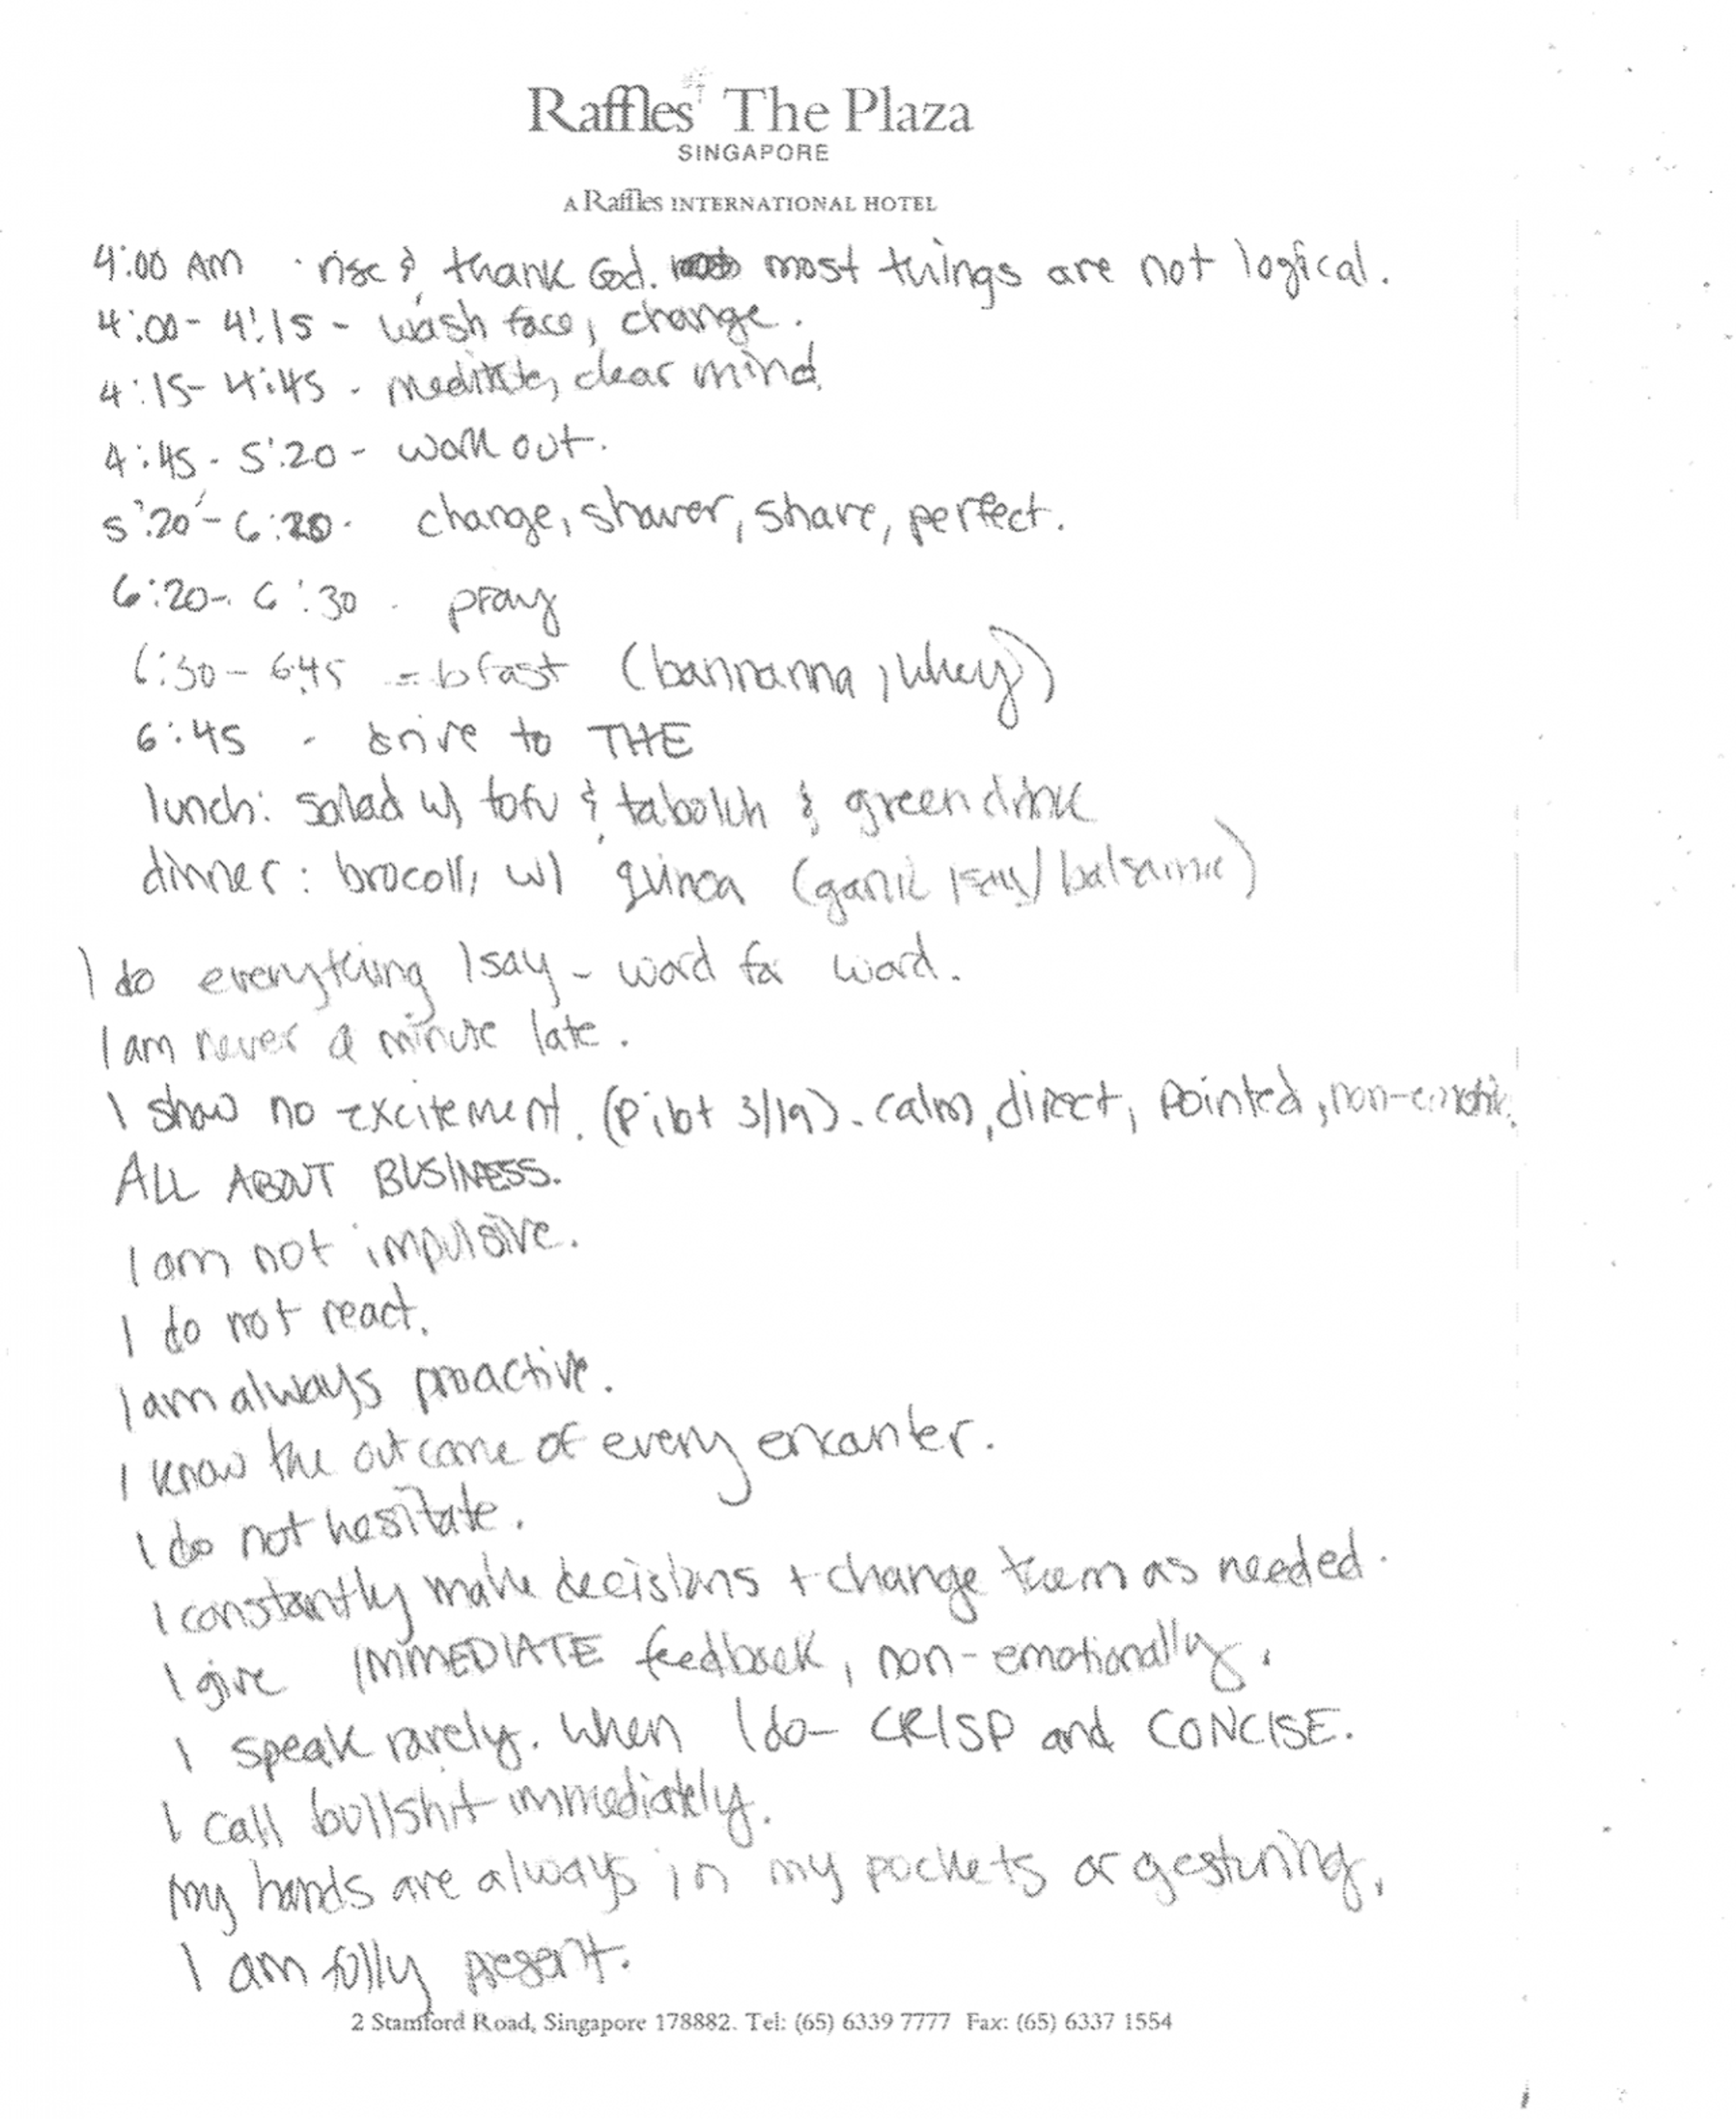 Raffles The Plaza
SINGAPORE
A Raffles INTERNATIONAL HOTEL
4:00 AM · rise & thank God. most things are not logical.
4:00 - 4:15 - wash face, change.
4:15 - 4:45 - meditate, clear mind.
4:45 - 5:20 - work out.
5:20 - 6:20 - change, shower, shave, perfect.
6:20 - 6:30 - pray
6:30 - 6:45 = bfast (bannanna, whey)
6:45 - drive to THE
lunch: salad w/ tofu & & green drink
dinner: brocolli w/ quinoa (garlic / balsamic)
I do everything I say - word for word.
I am never a minute late.
I show no excitement. (Pilot 3/19). calm, direct, pointed,
ALL ABOUT BUSINESS.
I am not impulsive.
I do not react.
I am always proactive.
I know the outcome of every encounter.
I do not hesitate.
I constantly make decisions + change them as needed.
I give IMMEDIATE feedback, non-emotionally.
I speak rarely. When I do - CRISP and CONCISE.
I call bullshit immediately.
My hands are always in my pockets or gesturing.
I am fully present.
2 Stamford Road, Singapore 178882. Tel: (65) 6339 7777 Fax: (65) 6337 1554